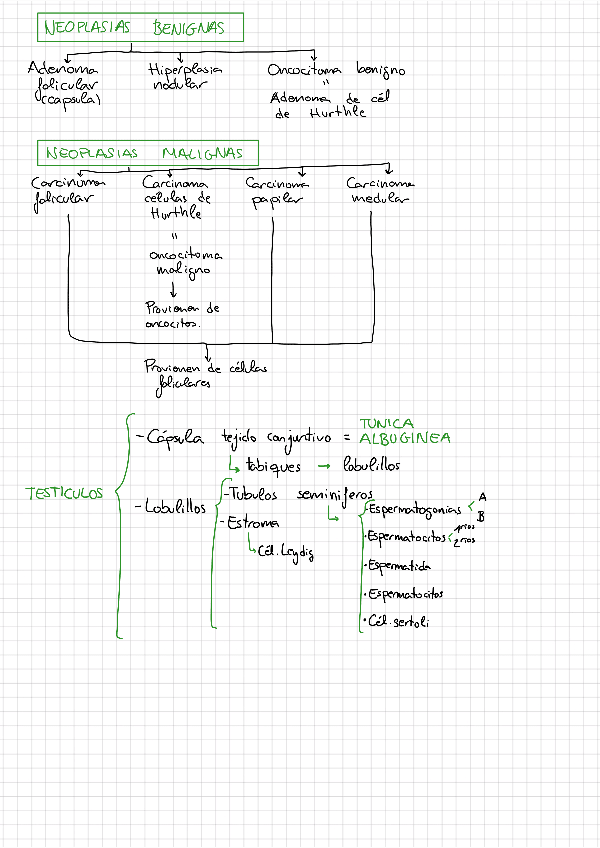 NEOPLASIAS BENIGNAS
Adenoma folicular (capsula)
Hiperplasia nodular
Oncocitoma benigno
"
Adenoma de cél de Hurthle
NEOPLASIAS MALIGNAS
Carcinoma folicular
Carcinoma celulas de Hurthle
"
oncocitoma maligno
Provienen de oncocitos.
Carcinoma papilar
Carcinoma medular
Provienen de células foliculares
TESTÍCULOS
- Cápsula tejido conjuntivo = TUNICA ALBUGINEA
tabiques → lobulillos
- Lobulillos
- Tubulos seminiferos
- Estroma
Cél. Leydig
· Espermatogonias < A B
· Espermatocitos < 1rios 2rios
· Espermatida
· Espermatocitos
· Cél. sertoli